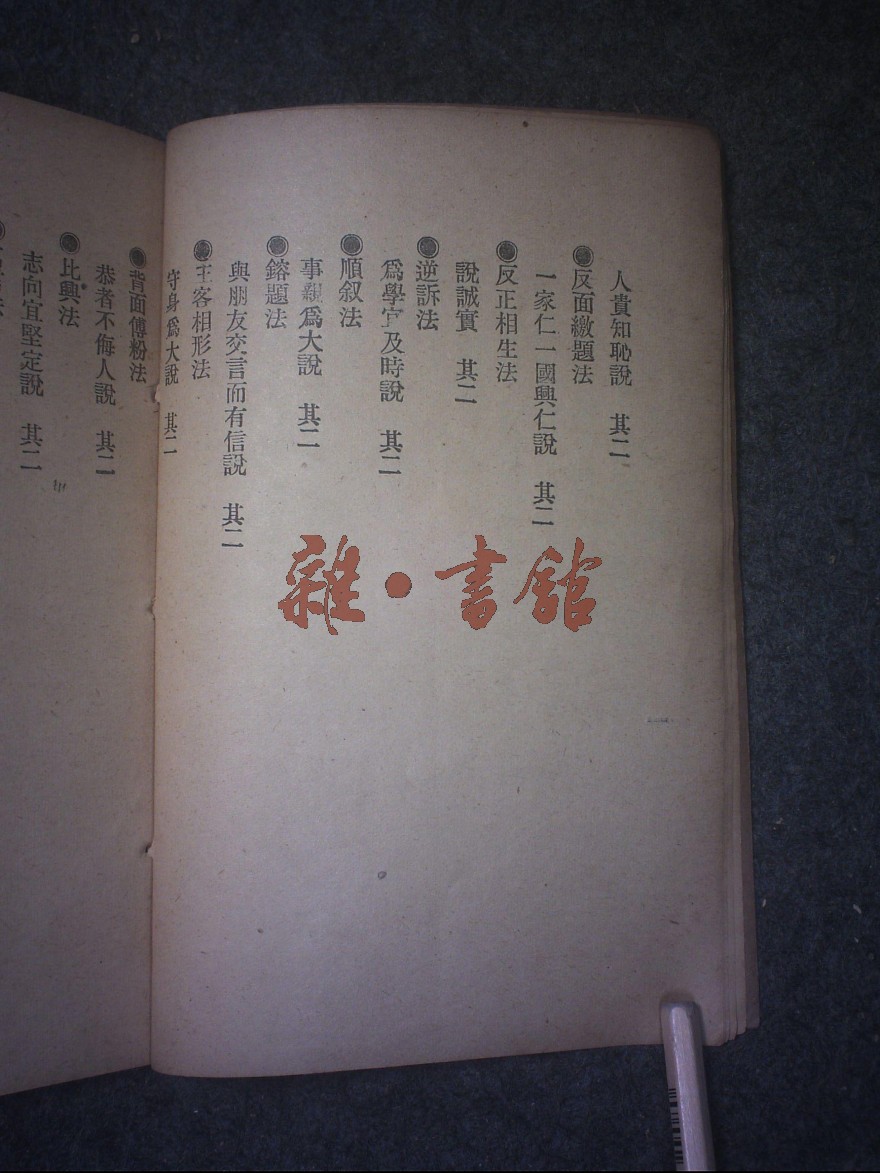 人貴知恥說　其二
◉反面繳題法
一家仁一國興仁說　其二
◉反正相生法
說誠實　其二
◉逆訴法
爲學宜及時說　其二
◉順叙法
事親爲大說　其二
◉鎔題法
與朋友交言而有信說　其二
◉主客相形法
守身爲大說　其二
◉背面傅粉法
恭者不侮人說　其二
◉比興法
志向宜堅定說　其二
雜·書館